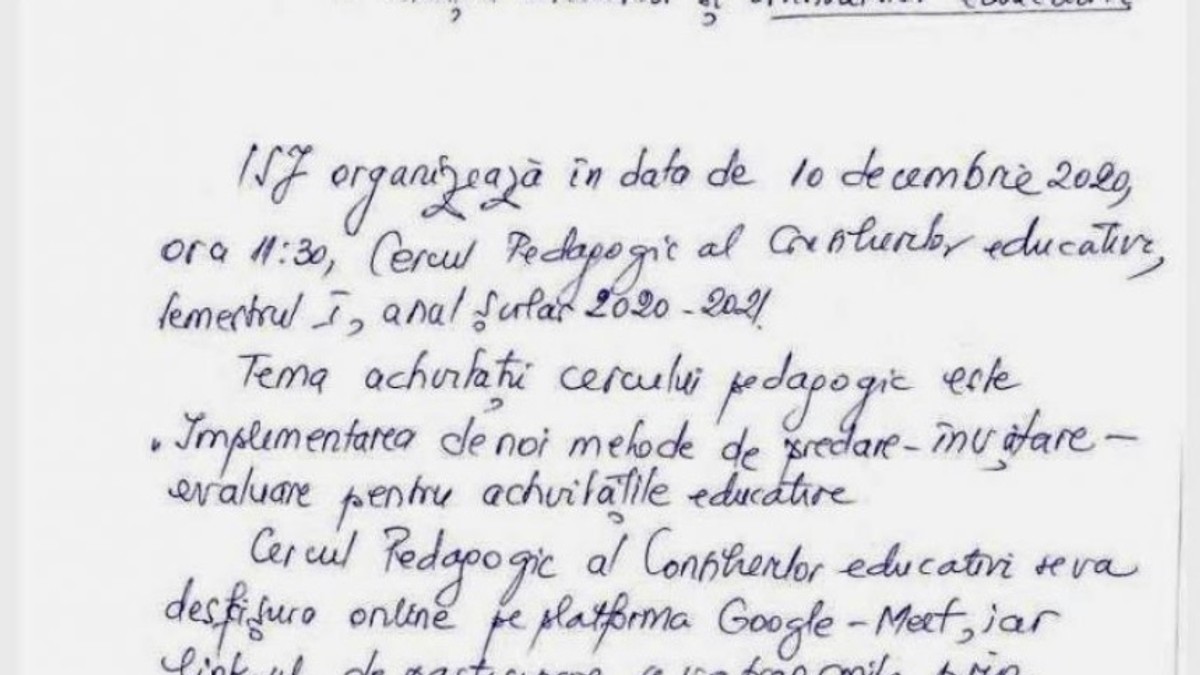 educative
ISJ organizează în data de 10 decembrie 2020,
ora 11:30, Cercul Pedagogic al Consilierilor educativi,
semestrul I, anul școlar 2020-2021.
Tema activității cercului pedagogic este
"Implementarea de noi metode de predare-învățare-
evaluare pentru activitățile educative
Cercul Pedagogic al Consilierilor educativi se va
desfășura online pe platforma Google-Meet, iar
linkul de participare prin